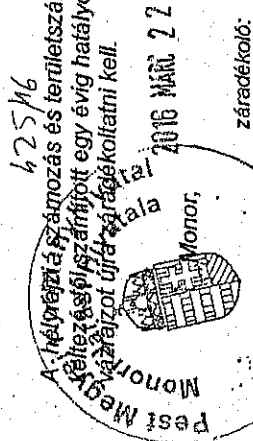 425/16
A helyrajzi számozás és területszá
keltezéstől számított egy évig hatályo
vázrajzot újra záradékoltatni kell.
Monor, 2016 MÁRC 22
záradékoló:
Pest Megy
Monor
tala